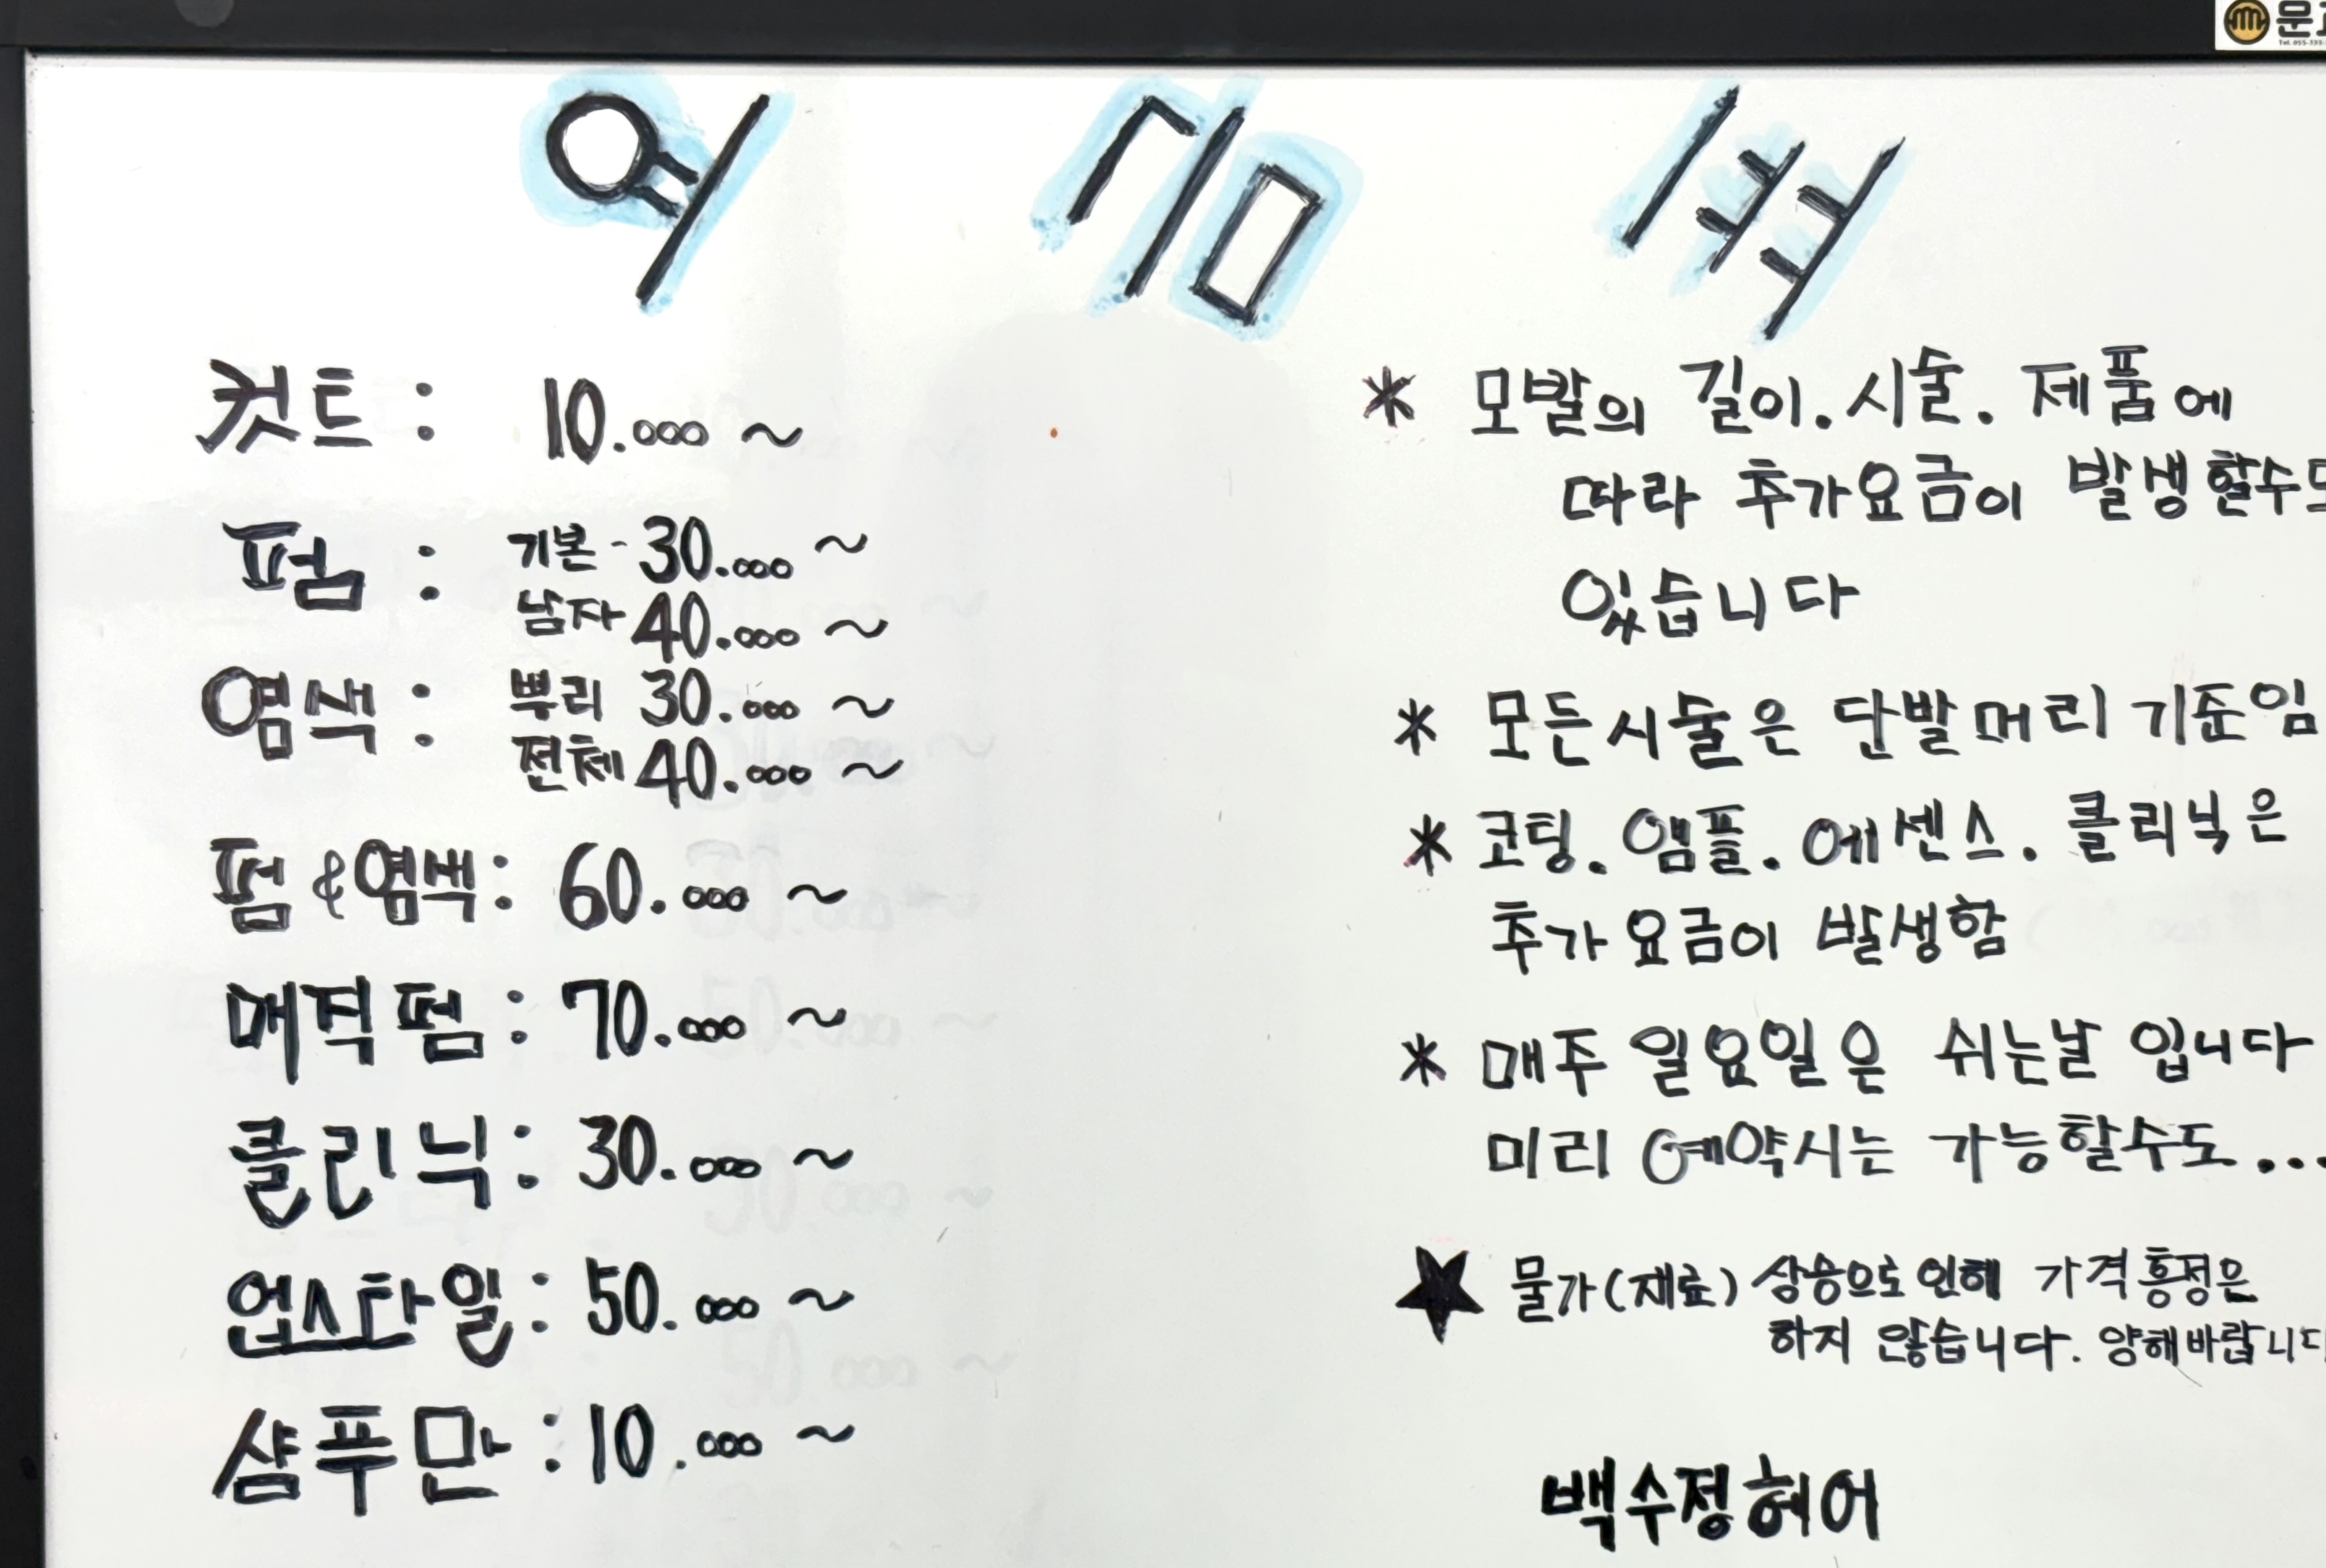 요 금 표
컷트 : 10.000 ~
펌 : 기본 - 30.000 ~
남자 40.000 ~
염색 : 뿌리 30.000 ~
전체 40.000 ~
펌 & 염색 : 60.000 ~
매직펌 : 70.000 ~
클리닉 : 30.000 ~
업스타일 : 50.000 ~
샴푸만 : 10.000 ~
* 모발의 길이. 시술. 제품에
따라 추가요금이 발생할수도
있습니다
* 모든시술은 단발머리 기준임
* 코팅. 앰플. 에센스. 클리닉은
추가요금이 발생함
* 매주 일요일은 쉬는날 입니다
미리 예약시는 가능할수도...
★ 물가(재료) 상승으로인해 가격흥정은
하지 않습니다. 양해바랍니다
백수정헤어